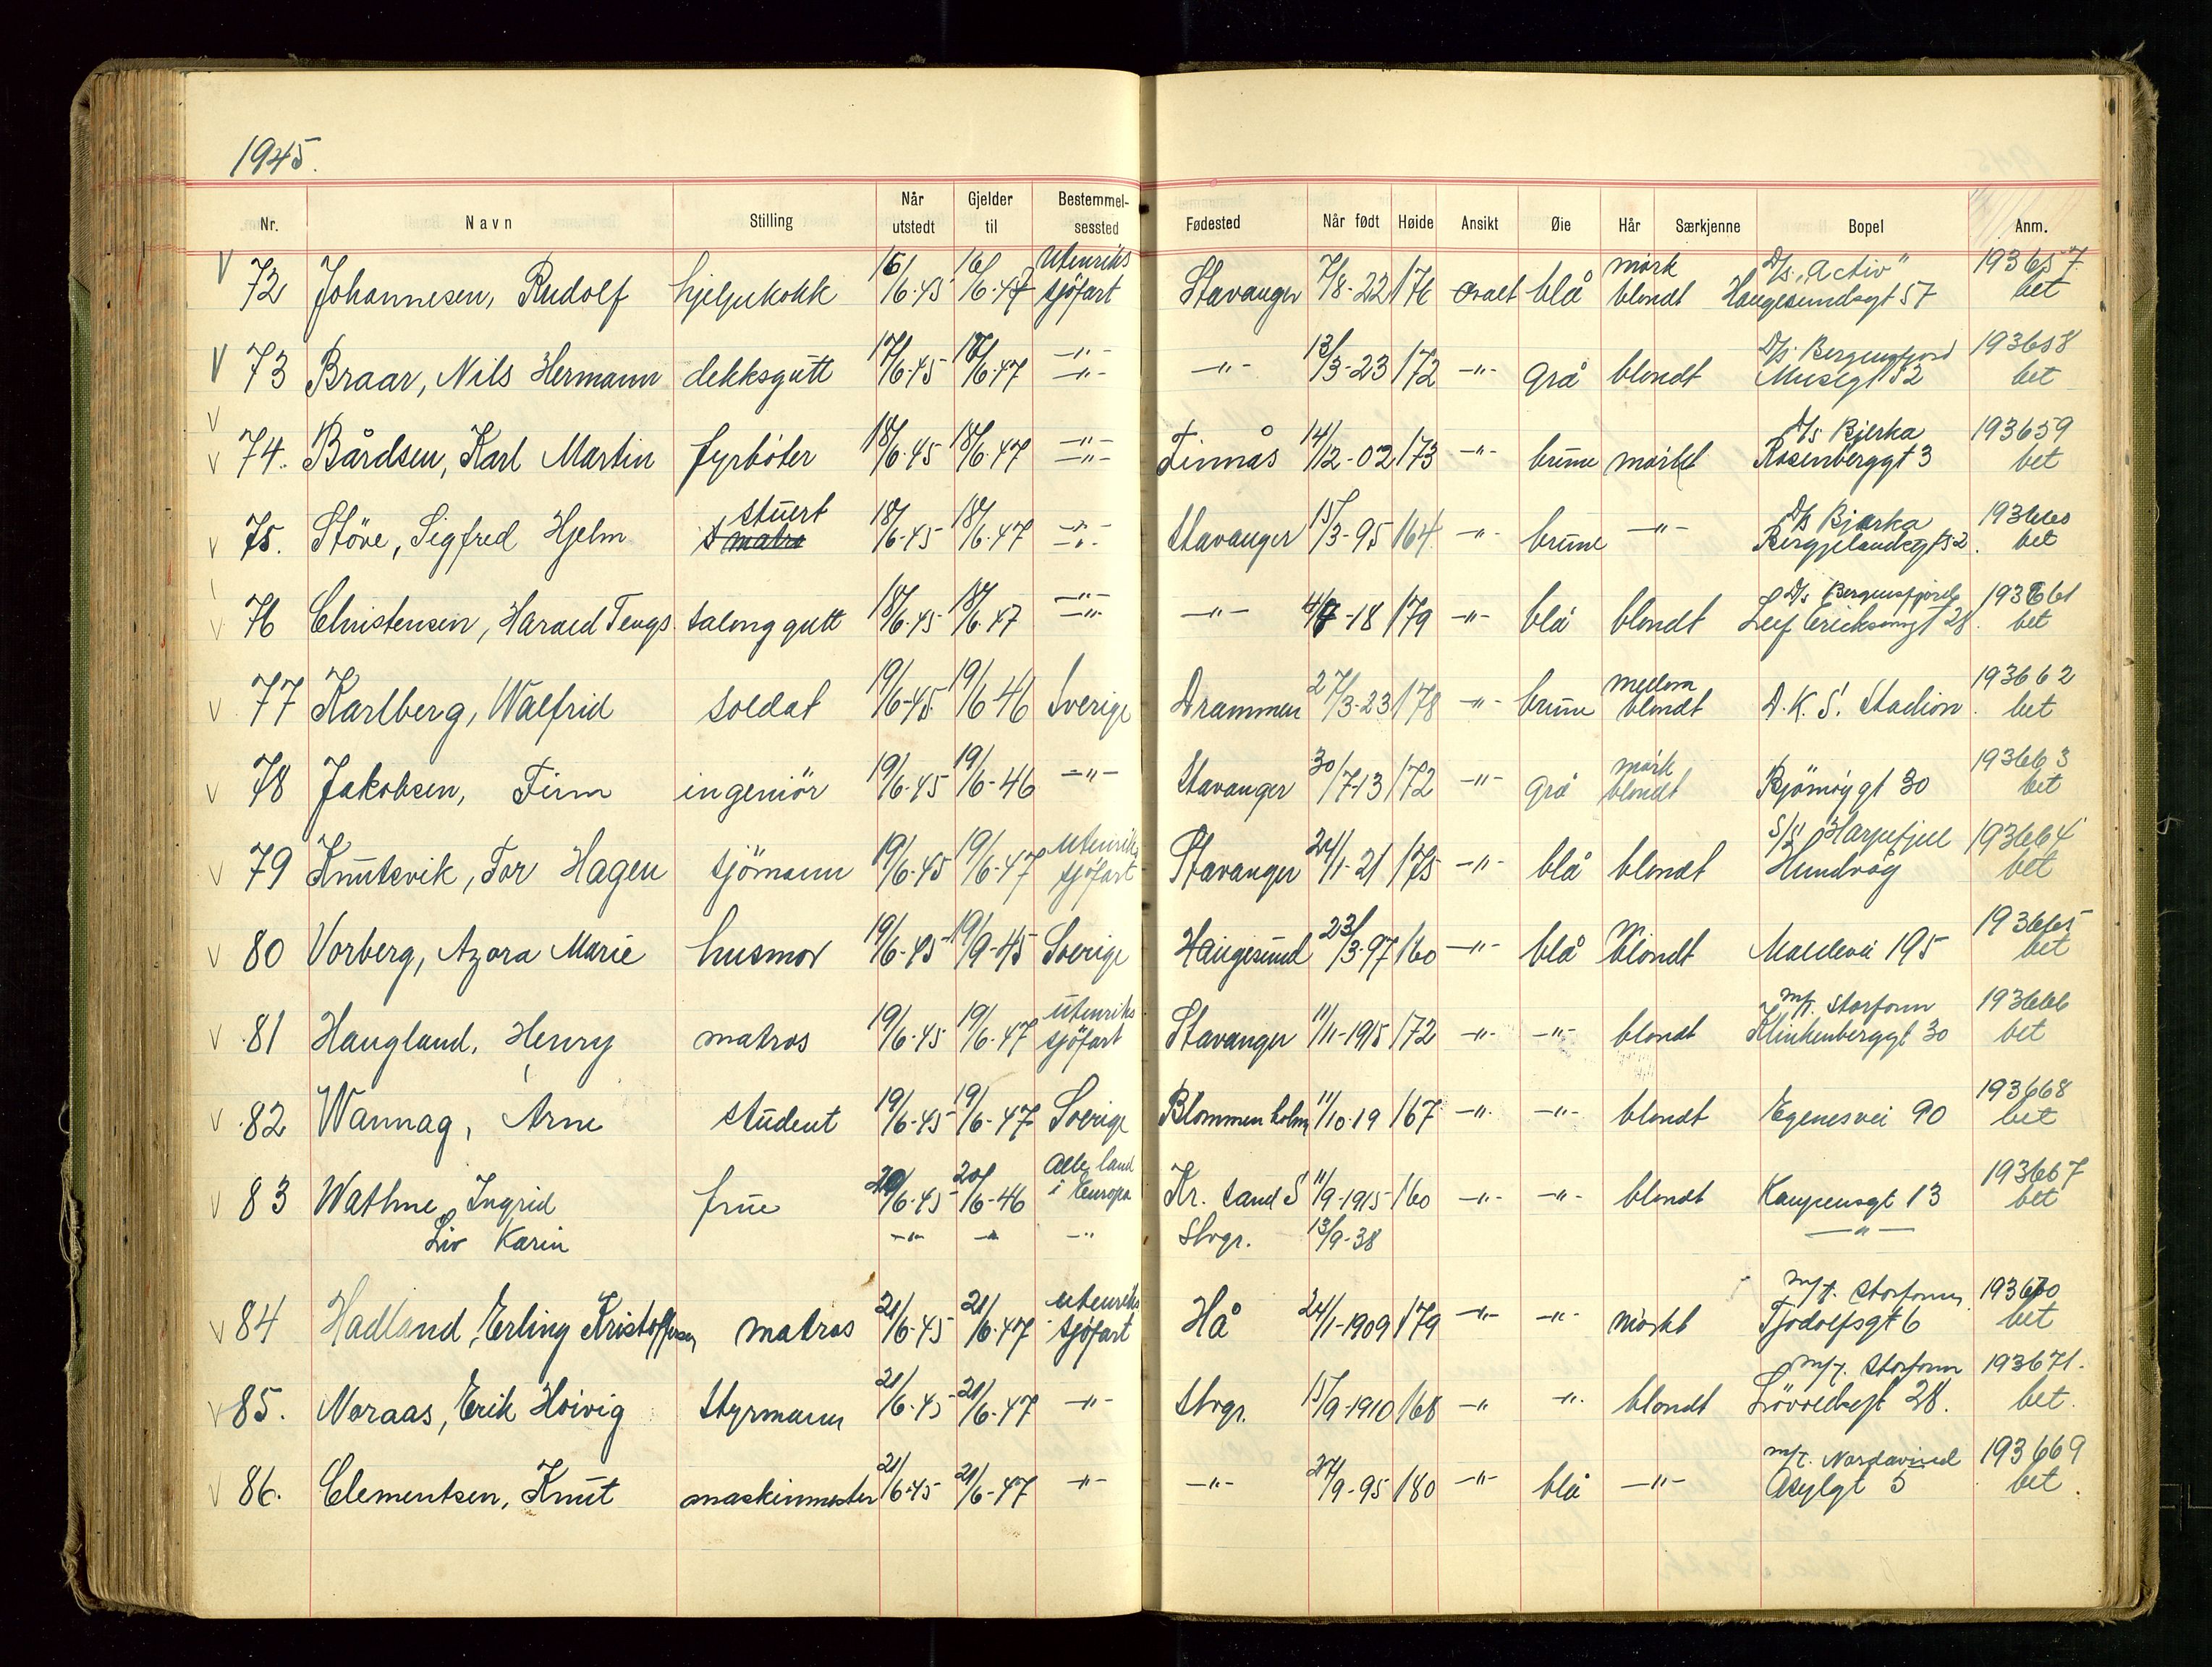 1945.
Nr. Navn Stilling Når utstedt Gjelder til Bestemmel-sessted Fødested Når født Høide Ansikt Øie Hår Særkjenne Bopel Anm.
V 72 Johannesen, Rudolf hjelpekokk 16/6-45 16/6-47 Utenriks sjöfart Stavanger 7/8-22 176 ovalt blå mørk blondt D/s. "Activ" Haugesundsgt 57 193657 bet
V 73 Braar, Nils Hermann dekksgutt 17/6-45 18/6-47 -"- -"- -"- 13/3-23 172 -"- grå blondt D/s. Bergensfjord Musegt 52 193658 bet
V V 74. Bårdsen, Karl Martin fyrböter 18/6-45 18/6-47 -"- -"- Finnås 14/12-02 173 -"- brune mørkt D/s Bjerka Rosenberggt 3 193659 bet
V 75. Støve, Sigfred Hjelm stuert 18/6-45 18/6-47 -"- -"- Stavanger 15/3-95 164 -"- brune -"- D/s Bjerka Bergjelandsgt 52. 193660 bet
V 76 Christensen, Harald Tengs salonggutt 18/6-45 18/6-47 -"- -"- -"- 4/7-18 179 -"- blå blondt D/s Bergensfjord Leif Eriksonsgt 28. 193661 bet
V 77 Karlberg, Walfrid soldat 19/6-45 19/6-46 Sverige Drammen 27/3-23 178 -"- brune mellom blondt D.K.S. Stadion. 193662 bet
V 78 Jakobsen, Finn ingeniör 19/6-45 19/6-46 -"- Stavanger 30/7-13 172 -"- grå mørk blondt Bjørnøygt 30 193663 bet
V 79 Knutsvik, Tor Hagen sjömann 19/6-45 19/6-47 utenriks sjøfart Stavanger 24/1-21 175 -"- blå blondt S/S Harpefjell Hundvåg 193664 bet
V 80 Vorberg, Azora Marie husmor 19/6-45 19/9-45 Sverige Haugesund 23/3-97 160 -"- blå m blondt Madlavei 195 193665 bet
V 81 Haugland, Henry matros 19/6-45 19/6-47 utenriks sjöfart Stavanger 11/11-1915 172 -"- -"- blondt m/t. Storfonn Klinkenberggt 30 193666 bet
V 82 Wannag, Arne student 19/6-45 19/6-47 Sverige Blommenholm 11/10-19 167 -"- -"- blondt Egenesvei 90 193668 bet
V 83 Wathne Ingrid frue 20/6-45 20/6-46 Alle land i Europa Kr. sand S 11/9-1915 160 -"- -"- blondt Kaupensgt 13 193667 bet
Liv Karin -"- -"- -"- Stvgr. 13/9-38 -"-
V 84 Hadland, Erling Kristoffersen matros 21/6-45 21/6-47 utenriks sjøfart Hå 24/1-1909 179 -"- -"- mørkt m/t. Storfonn Tjodolfsgt 6 193670 bet
V 85. Noraas, Erik Hoivig Styrmann 21/6-45 21/6-47 -"- Stvgr. 15/9-1910 168 -" -"- blondt m/t. Storfonn Lövoldsgt 28. 193671. bet.
V 86. Clementsen, Knut maskinmester 21/6-45 21/6-47 -"- -"- 27/9-95 180 -"- blå -"- m/t. Nordavind Asylgt 5 193669 bet.